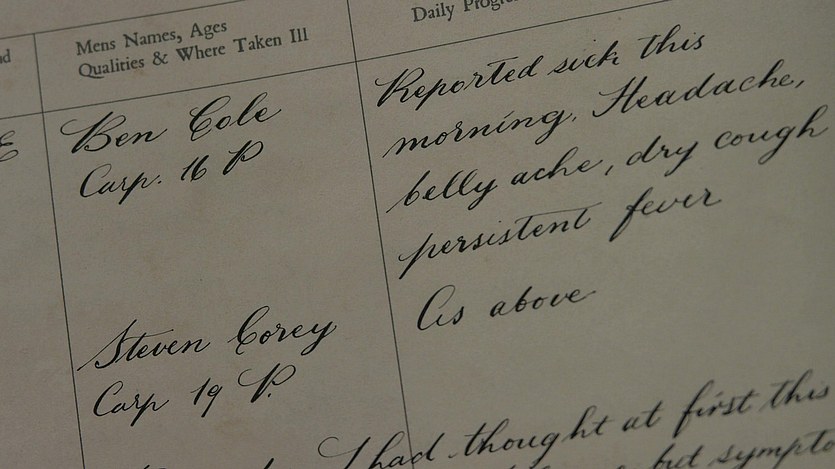 Mens Names, Ages
Qualities & Where Taken Ill
Daily
Ben Cole
Carp. 16 P
Reported sick this
morning. Headache,
belly ache, dry cough
persistent fever
Steven Corey
Carp 19 P.
As above
I had thought at first this
but